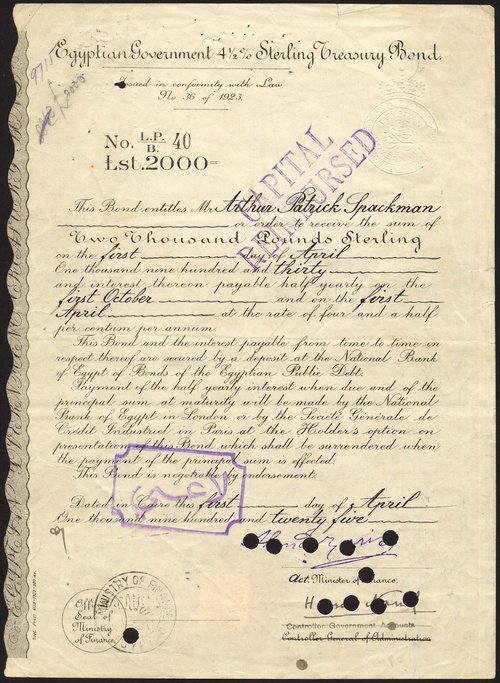 Egyptian Government 4½% Sterling Treasury Bond.
Issued in conformity with Law
No. 36 of 1923.
9715
No. L.P./B. 40
Lst.2000=
CAPITAL
REIMBURSED
This Bond entitles Mr Arthur Patrick Spackman
or order to receive the sum of
Two Thousand Pounds Sterling
on the first day of April
One thousand nine hundred and thirty
and interest thereon payable half yearly on the
first October and on the first
April at the rate of four and a half
per centum per annum.
This Bond and the interest payable from time to time in
respect thereof are secured by a deposit at the National Bank
of Egypt of Bonds of the Egyptian Public Debt.
Payment of the half yearly interest when due and of the
principal sum at maturity will be made by the National
Bank of Egypt in London or by the Société Générale de
Crédit Industriel in Paris at the Holder's option on
presentation of this Bond which shall be surrendered when
the payment of the principal sum is effected.
This Bond is negotiable by endorsement.
Dated in Cairo this first day of April
One thousand nine hundred and twenty five
Act. Minister of Finance.
Official
Seal of
Ministry
of Finance
MINISTRY OF FINANCE
Controller Government Accounts
Controller General of Administration